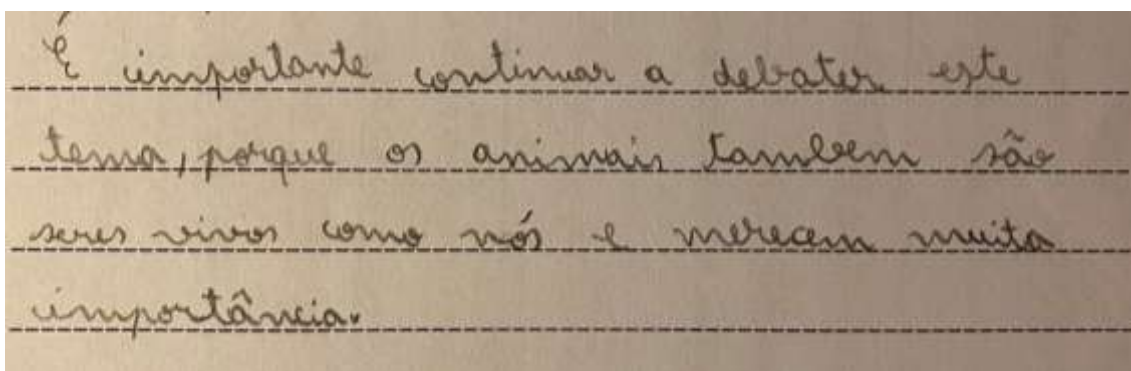 É importante continuar a debater este
tema, porque os animais tambem são
seres vivos como nós e merecem muita
importância.